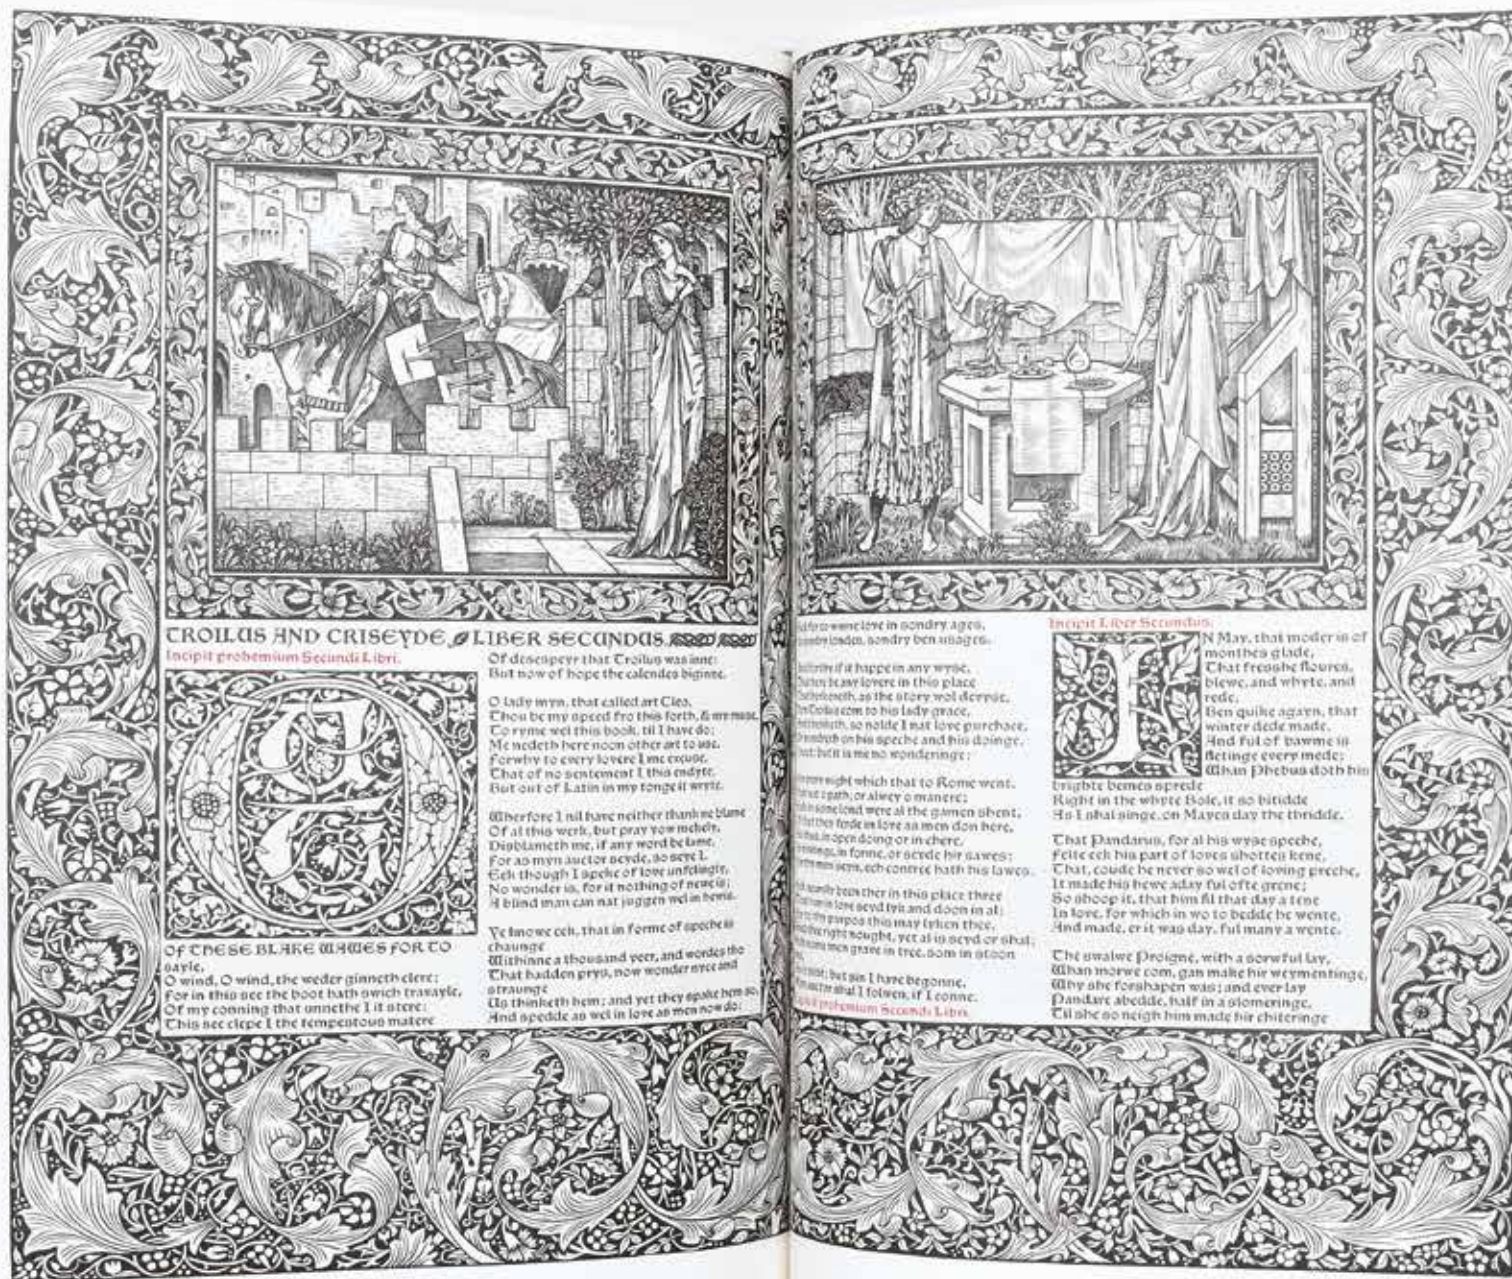 TROILUS AND CRISEYDE LIBER SECUNDUS.
Incipit prohemium Secundi Libri.
OUT
OF THESE BLAKE WAWES FOR TO
sayle,
O wind, O wind, the weder ginneth clere;
For in this see the boot hath swich travayle,
Of my conning that unnethe I it stere:
This see clepe I the tempestous matere
Of desespeyr that Troilus was inne:
But now of hope the calendes biginne.
O lady myn, that called art Cleo,
Thou be my speed fro this forth, & my muse,
To ryme wel this book, til I have do;
Me nedeth here noon other art to use.
Forwhy to every lovere I me excuse,
That of no sentement I this endyte,
But out of Latin in my tonge it wryte.
Wherfore I nil have neither thank ne blame
Of al this werk, but pray yow mekely,
Disblameth me, if any word be lame,
For as myn auctor seyde, so seye I.
Eek though I speke of love unfelingly,
No wonder is, for it nothing of newe is;
A blind man can nat juggen wel in hewis.
Ye knowe eek, that in forme of speche is
chaunge
Withinne a thousand yeer, and wordes tho
That hadden prys, now wonder nyce and
straunge
Us thinketh hem; and yet they spake hem so,
And spedde as wel in love as men now do:
to winne love in sondry ages,
londes, sondry ben usages.
if it happe in any wyse,
be any lovere in this place
herkeneth, as the story wol devyse,
com to his lady grace,
so nolde I nat love purchace,
on his speche and his doinge,
but it is me no wonderinge;
wight which that to Rome went,
path, or alwey o manere;
in some lond were al the gamen shent,
ferde in love as men don here,
in open doing or in chere,
in forme, or seyde hir sawes;
men seyn, ech contree hath his lawes.
been ther in this place three
in love seyd lyk and doon in al;
purpos this may lyken thee,
right nought, yet al is seyd or shal;
men grave in tree, som in stoon
but sin I have begonne,
shal I folwen, if I conne.
prohemium Secundi Libri.
Incipit Liber Secundus.
IN May, that moder is of
monthes glade,
That fresshe floures,
blewe, and whyte, and
rede,
Ben quike agayn, that
winter dede made,
And ful of bawme is
fletinge every mede;
Whan Phebus doth his
brighte bemes sprede
Right in the whyte Bole, it so bitidde
As I shal singe, on Mayes day the thridde,
That Pandarus, for al his wyse speche,
Felte eek his part of loves shottes kene,
That, coude he never so wel of loving preche,
It made his hewe aday ful ofte grene;
So shoop it, that him fil that day a tene
In love, for which in wo to bedde he wente,
And made, er it was day, ful many a wente.
The swalwe Proigne, with a sorwful lay,
Whan morwe com, gan make hir weymentinge,
Why she forshapen was; and ever lay
Pandare abedde, half in a slomeringe,
Til she so neigh him made hir chiteringe